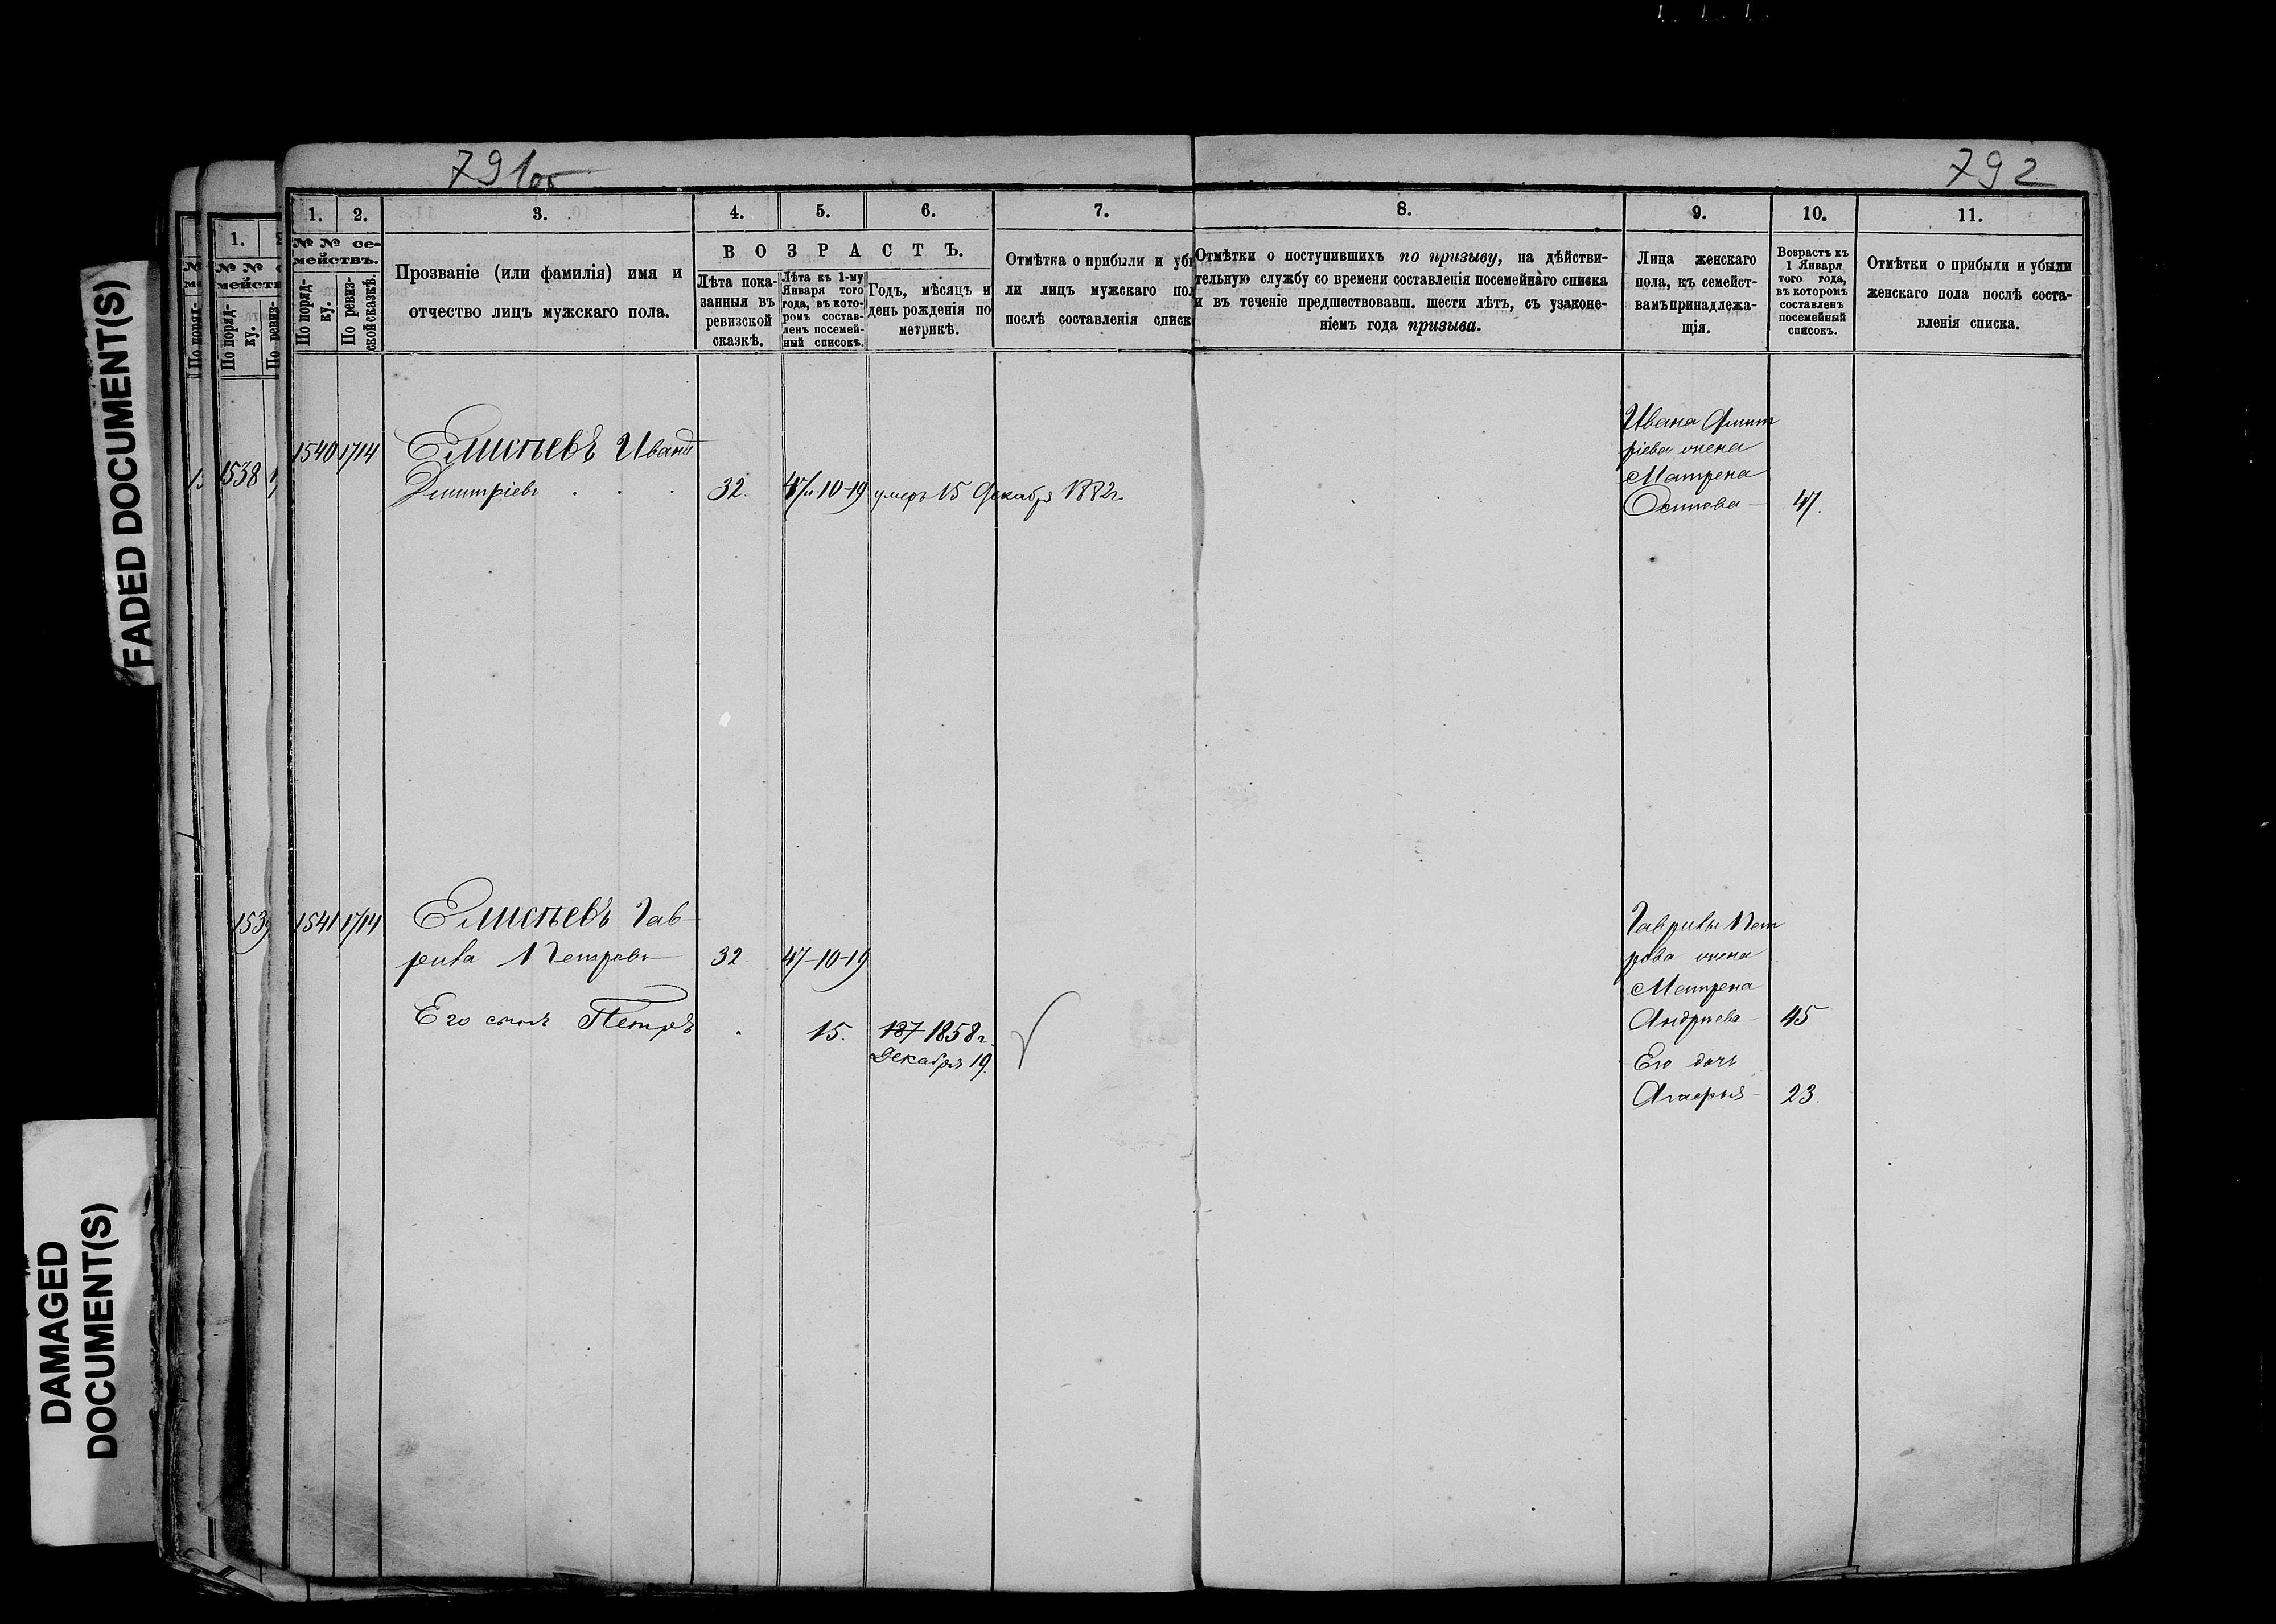 FADED DOCUMENT(S)
DAMAGED
DOCUMENT(S)
791об
792
1. 2. 3. 4. 5. 6. 7. 8. 9. 10. 11.
№ № се-
мействъ.
По поряд-
ку.
По ревиз-
ской сказкѣ.
Прозваніе (или фамилія) имя и
отчество лицъ мужскаго пола.
ВОЗРАСТЪ.
Лѣта пока-
занныя въ
ревизской
сказкѣ.
Лѣта къ 1-му
Января того
года, въ кото-
ромъ состав-
ленъ посемей-
ный списокъ.
Годъ, мѣсяцъ и
день рожденія по
метрикѣ.
Отмѣтка о прибыли и убы
ли лицъ мужскаго пол
послѣ составленія списк
Отмѣтки о поступившихъ по призыву, на дѣйстви-
тельную службу со времени составленія посемейнаго списка
и въ теченіе предшествовавш. шести лѣтъ, съ узаконе-
ніемъ года призыва.
Лица женскаго
пола, къ семейст-
вамъ принадлежа-
щія.
Возрастъ къ
1 Января
того года,
въ которомъ
составленъ
посемейный
списокъ.
Отмѣтки о прибыли и убыли
женскаго пола послѣ соста-
вленія списка.
1.
№ №
мейств
По поряд-
ку.
По ревиз-
1538
1539
1540 1714 Елисѣевъ Иванъ
Дмитріевъ . . . 32. 47-10-19 умеръ 15 Декабря 1882г.
Ивана Дмит
ріева жена
Матрена
Осипова — 47.
1541 1714 Елисѣевъ Гав-
рила Петровъ 32 47-10-19
Его сынъ Петръ . 15. 187 1858 г.
Декабря 19.
Гаврилы Пет
рова жена
Матрена
Андреева — 45
Его дочь
Агафья — 23.